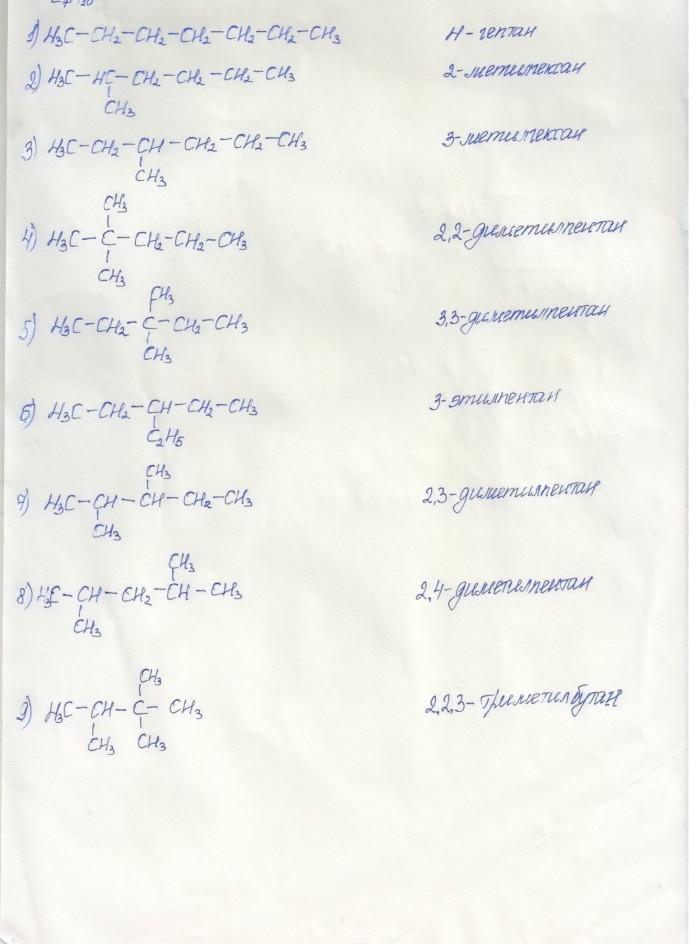 1) H₃C–CH₂–CH₂–CH₂–CH₂–CH₂–CH₃ Н-гептан
2) H₃C–HC–CH₂–CH₂–CH₂–CH₃ 2-метилгексан
CH₃
3) H₃C–CH₂–CH–CH₂–CH₂–CH₃ 3-метилгексан
CH₃
CH₃
4) H₃C–C–CH₂–CH₂–CH₃ 2,2-диметилпентан
CH₃
CH₃
5) H₃C–CH₂–C–CH₂–CH₃ 3,3-диметилпентан
CH₃
6) H₃C–CH₂–CH–CH₂–CH₃ 3-этилпентан
C₂H₅
CH₃
7) H₃C–CH–CH–CH₂–CH₃ 2,3-диметилпентан
CH₃
CH₃
8) H₃C–CH–CH₂–CH–CH₃ 2,4-диметилпентан
CH₃
CH₃
9) H₃C–CH–C–CH₃ 2,2,3-триметилбутан
CH₃ CH₃